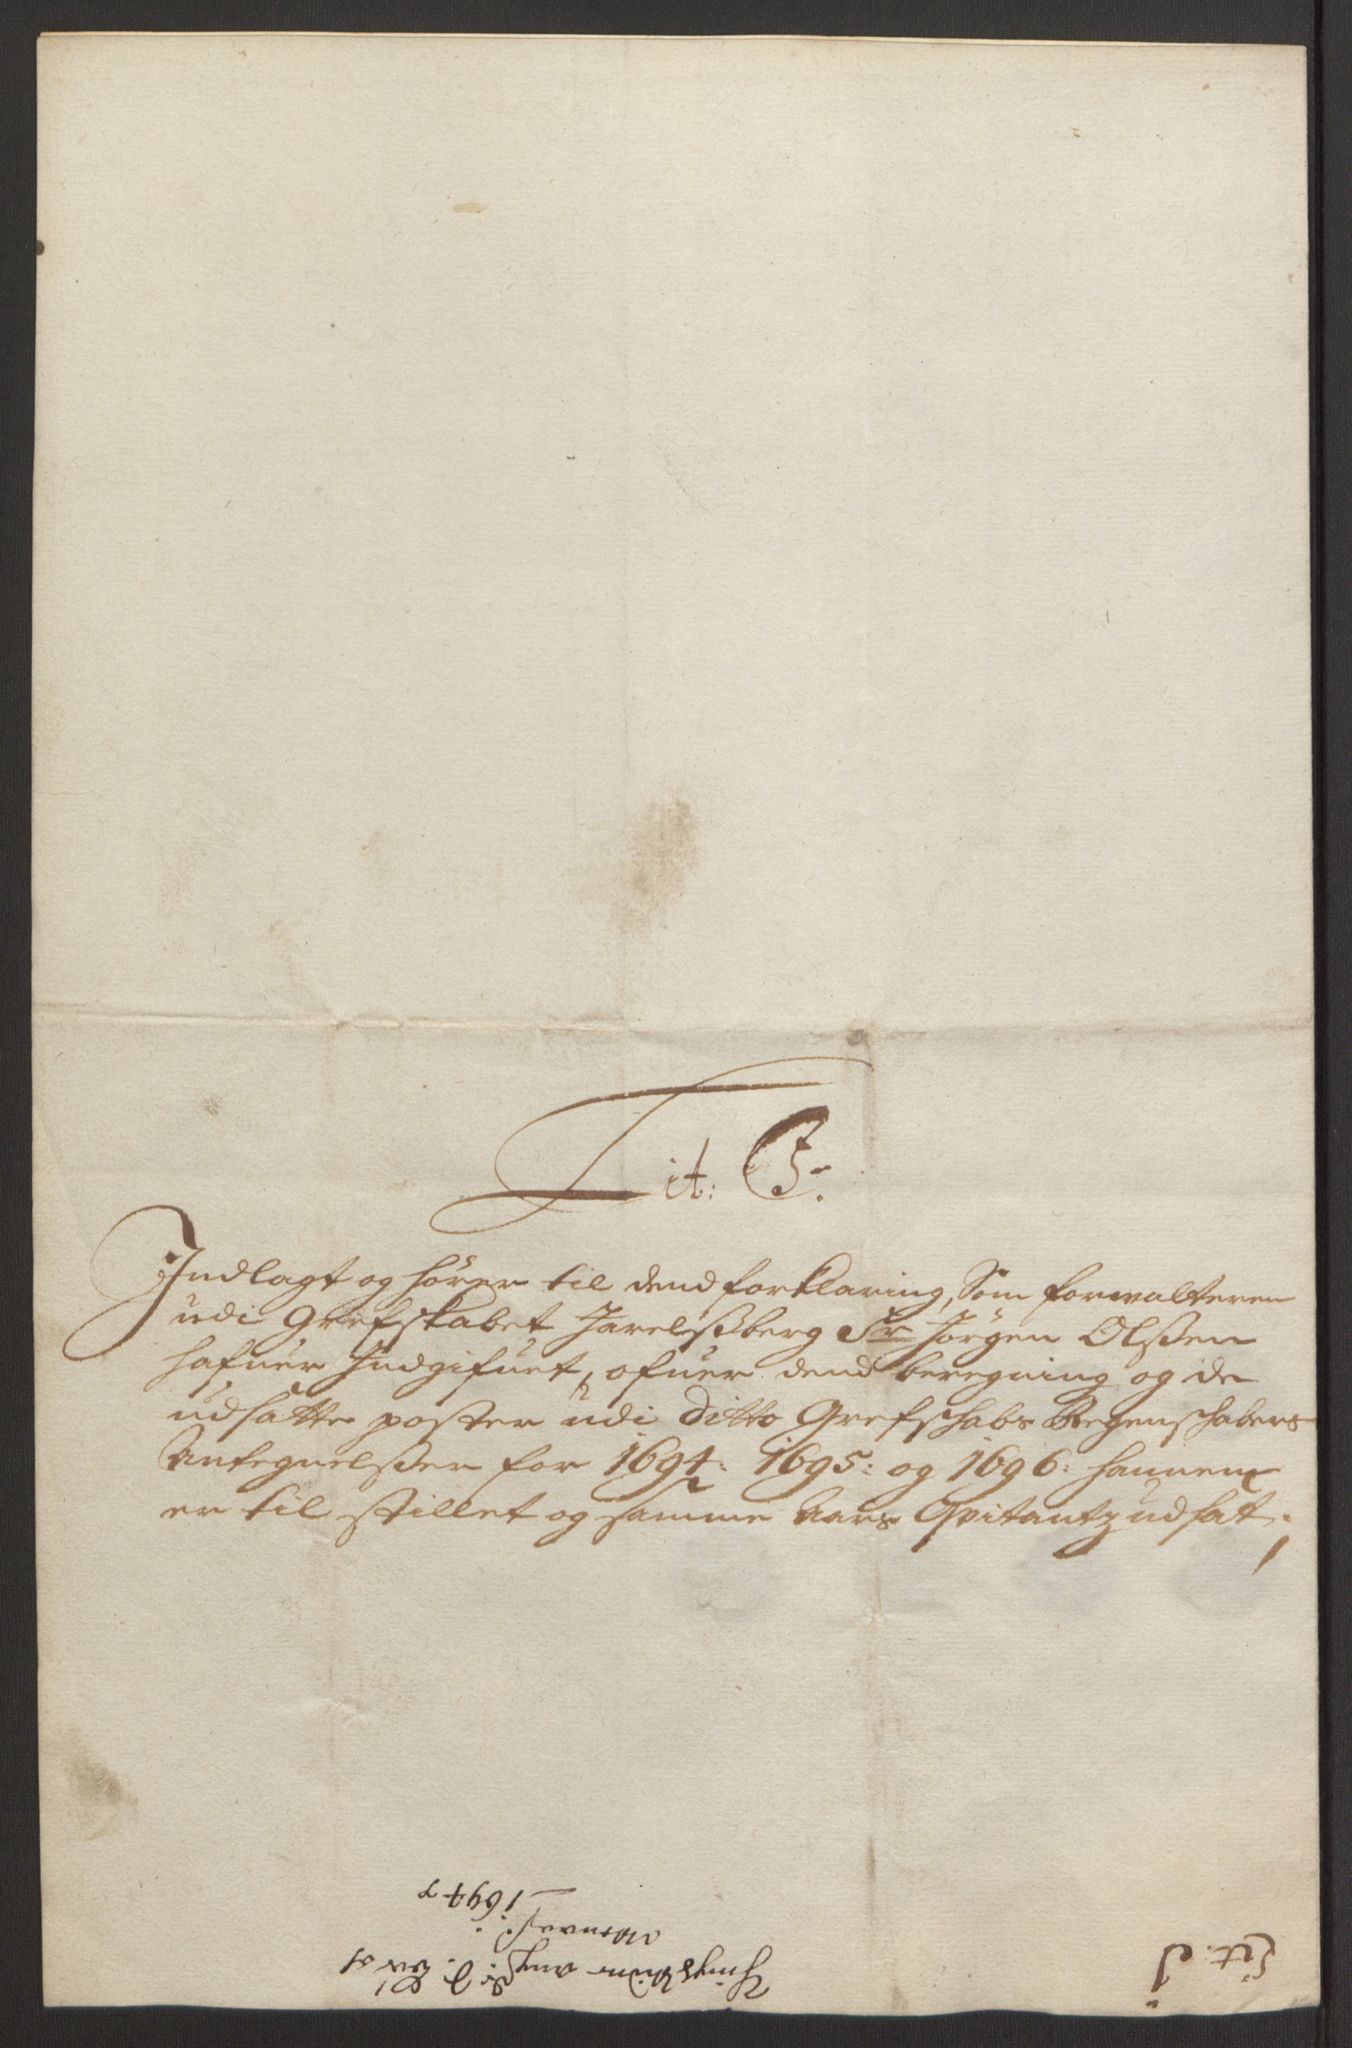 Lit: C.
Indlagt og hører til dend forklaring, Som forwalteren
udi Grefskabet Jarelsßberg Sr Jörgen Olßen
hafuer Indgifuet, ofuer dend beregning og de
udsatte poster udi ditto Grefschabs Regenschabers
Antegnelßer for 1694: 1695: og 1696: hannem
er til stillet og samme Aars Qvitantz udsat.
Lit:
1694